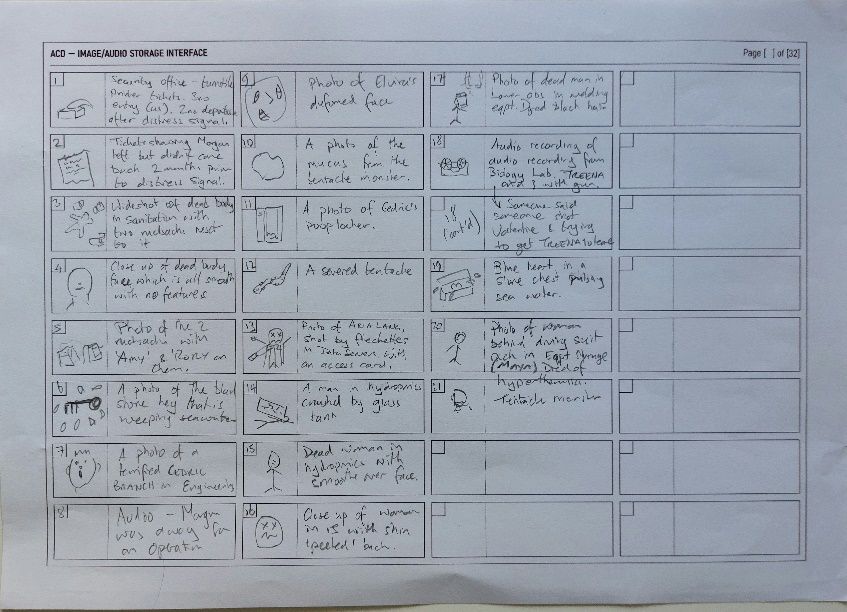 ACD — IMAGE/AUDIO STORAGE INTERFACE
Page [ ] of [32]
1
Security office – turnstile
tickets. 3rd
entry (us). 2nd departure
after distress signal.
2
Tickets showing Magan
left but didn't come
back 2 months prior
to distress signal.
3
Wideshot of dead body
in sanitation with
two rucksacks next
to it
4
Close up of dead body
face which is all smooth
with no features
5
Photo of the 2
rucksacks with
'Amy' & 'Rory' on
them.
6
A photo of the blue
stone key that is
weeping seawater
7
A photo of a
terrified CEDRIC
BRANCH in Engineering
8
Audio – Magan
was away for
an operation
9
Photo of Elvira's
deformed face
10
A photo of the
mucus from the
tentacle monster.
11
A photo of Cedric's
poop locker.
12
A severed tentacle
13
Photo of
shot by flechettes
in with
an access card.
14
A man in hydroponics
crushed by glass
tank
15
Dead woman in
hydroponics with
smooth over face.
16
Close up of woman
in 15 with skin
'peeled' back.
17
Photo of dead man in
Lower obs in welding
eqpt. Dead black hair
18
Audio recording of
audio recording from
Biology Lab. TREENA
and J with gun.
18
(cont'd)
Someone said
someone shot
Valentine & trying
to get TREENA to leave
19
Blue heart in a
stone chest pulsing
sea water.
20
Photo of woman
behind diving suit
rack in Eqpt Storage
(MAYA) Died of
hypothermia.
21
Tentacle monster